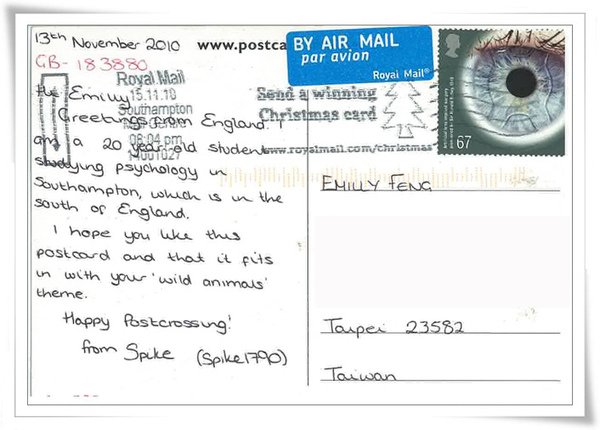 13th November 2010
GB-183880
www.postca
BY AIR MAIL
par avion
Royal Mail®
Royal Mail
15.11.10
Southampton
Mail Centre
06:04 pm
Send a winning
Christmas card
www.royalmail.com/christmas
67
Hi Emilly
Greetings from England.
I'm a 20 year old student
studying psychology in
Southampton, which is in the
south of England.
I hope you like this
postcard and that it fits
in with your 'wild animals'
theme.
Happy Postcrossing!
from Spike (Spike1790)
EMILLY FENG
Taipei 23582
Taiwan